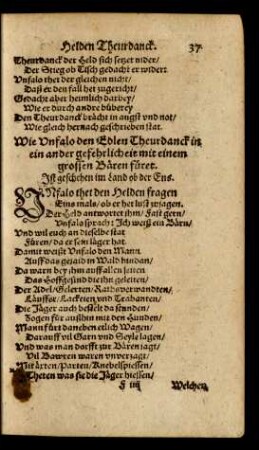 Helden Theurdanck. 37
Theurdanck der Held sich setzet nider/
Der Stieg ob Tisch gedacht er widert
Vnfalo thet der gleichen nicht/
Daß er den fall het zugericht/
Gedacht aber heimlich darbey
Wie er durch andre büberey
Den Theurdanck brächt in angst vnd not/
Wie gleich hernach geschrieben stat.
Wie Vnfalo den Edlen Theurdanck in
ein ander gefehrlicheit mit einem
grossen Bären füret.
Ist geschehen im Land ob der Ens.
VNfalo thet den Helden fragen
Eins mals/ ob er het lust zjagen.
Der Held antwortet ihm/ Fast gern/
Vnfalo sprach: Ich weiß ein Bärn/
Vnd wil euch an dieselbe stat
Füren/ da er sein läger hat.
Damit weißt Vnfalo den Mann
Auff das gejaid in Wald hindan/
Da warn bey ihm auff allen seiten
Das Hoffgesind die ihn geleiten/
Der Adel/ Gelerten/ Rathsverwandten/
Läuffer/ Lackeien vnd Trabanten/
Die Jäger auch bestelt da stunden/
Zogen für auß hin mit den Hunden/
Man fürt daneben etlich Wagen/
Darauff vil Garn vnd Seyle lagen/
Vnd was man dorfft zur Bären jagt/
Vil Bawren waren vnverzagt/
Mit ärten/ Parten/ Knebelspiessen/
Theten was sie die Jäger hiessen/
F iiij Welchen